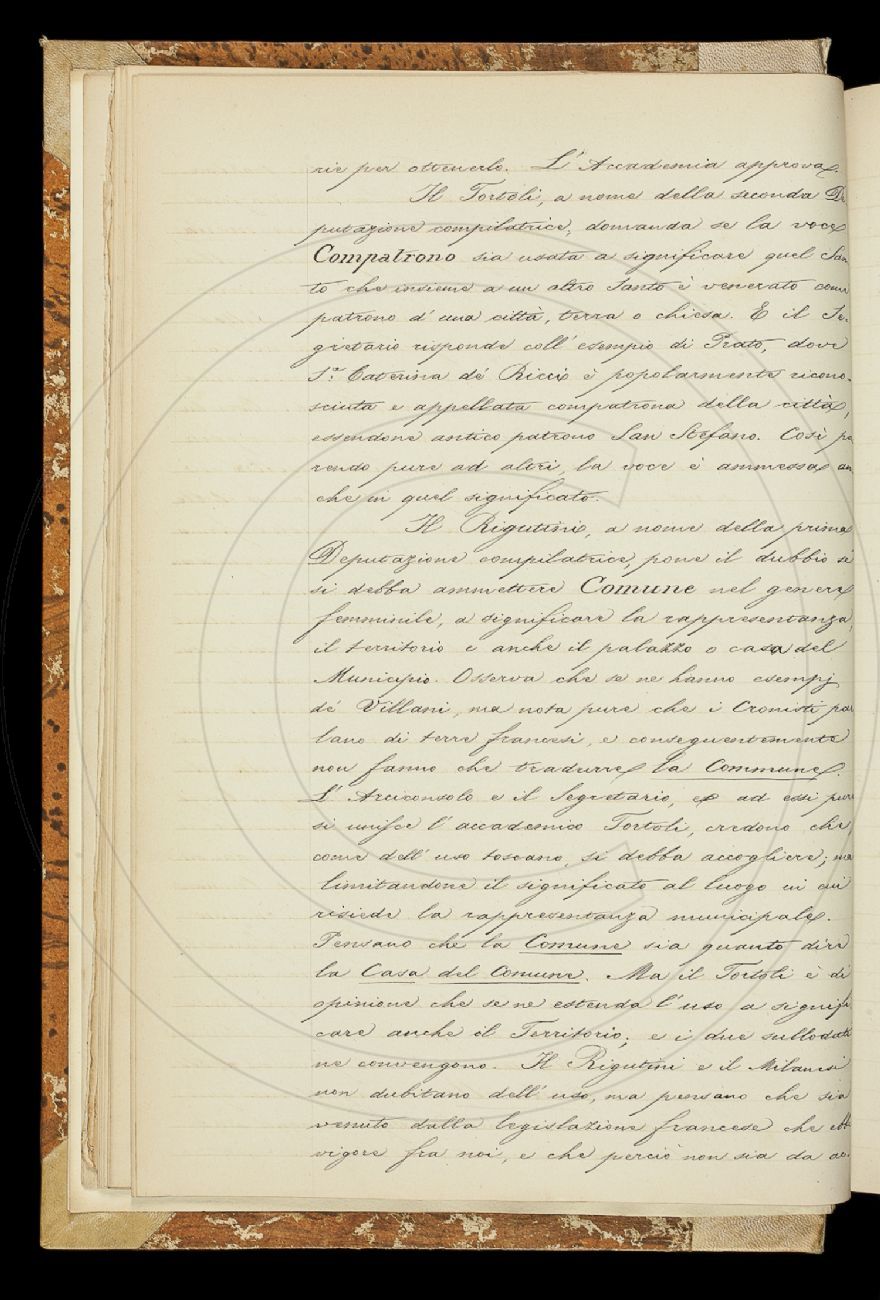 rie per ottenerlo. L'Accademia approva.
Il Tortoli, a nome della seconda De
putazione compilatrice, domanda se la voce
Compatrono sia usata a significare quel San
to che insieme a un altro Santo è venerato come
patrono d'una città, terra o chiesa. E il Se-
gretario risponde coll'esempio di Prato, dove
Sta Caterina de' Ricci è popolarmente ricono-
sciuta e appellata compatrona della città,
essendone antico patrono San Stefano. Così pa
rendo pure ad altri, la voce è ammessa an
che in quel significato.
Il Rigutini, a nome della prima
Deputazione compilatrice, pone il dubbio se
si debba ammettere Comune nel genere
femminile, a significare la rappresentanza,
il territorio e anche il palazzo o casa del
Municipio. Osserva che se ne hanno esempj
de' Villani, ma nota pure che i Cronisti par
lano di terre francesi, e conseguentemente
non fanno che tradurre la Commune.
L'Arciconsolo e il Segretario, e ad essi pure
si unisce l'accademico Tortoli, credono che,
come dell'uso toscano, si debba accogliere; ma
limitandone il significato al luogo in cui
risiede la rappresentanza municipale.
Pensano che la Comune sia quanto dire
la Casa del Comune. Ma il Tortoli è di
opinione che se ne estenda l'uso a signifi
care anche il Territorio; e i due sullodati
ne convengono. Il Rigutini e il Milanesi
non dubitano dell'uso, ma pensano che sia
venuto dalla legislazione francese che ebbe
vigore fra noi, e che perciò non sia da ac-